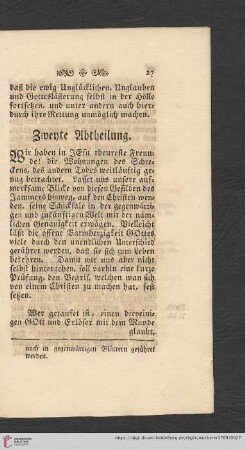 27
daß die ewig Unglücklichen, Unglauben
und Gotteslästerung selbst in der Hölle
fortsetzen, und unter andern auch hier-
durch ihre Rettung unmöglich machen.
Zweyte Abtheilung.
Wir haben in JEsu theureste Freun-
de! die Wohnungen des Schre-
ckens, des andern Todes weitläuftig ge-
nug betrachtet. Lasset uns unsere auf-
merksame Blicke von diesen Gefilden des
Jammers hinweg, auf den Christen wen-
den, seine Schicksale in der gegenwärti-
gen und zukünftigen Welt mit der näm-
lichen Genauigkeit erwägen. Vielleicht
läßt die offene Barmherzigkeit GOttes
viele durch den unendlichen Unterschied
gerühret werden, daß sie sich zum Leben
bekehren. Damit wir uns aber nicht
selbst hintergehen, soll vorhin eine kurze
Prüfung, den Begrif, welchen man sich
von einem Christen zu machen hat, fest
setzen.
Wer getaufet ist, einen dreyeini-
gen GOtt und Erlöser mit dem Munde
glaubt,
noch in gegenwärtigen Blättern geführet
werden.